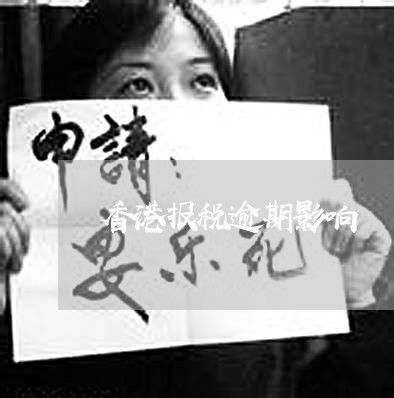 申請：
香港报税逾期影响
安乐死